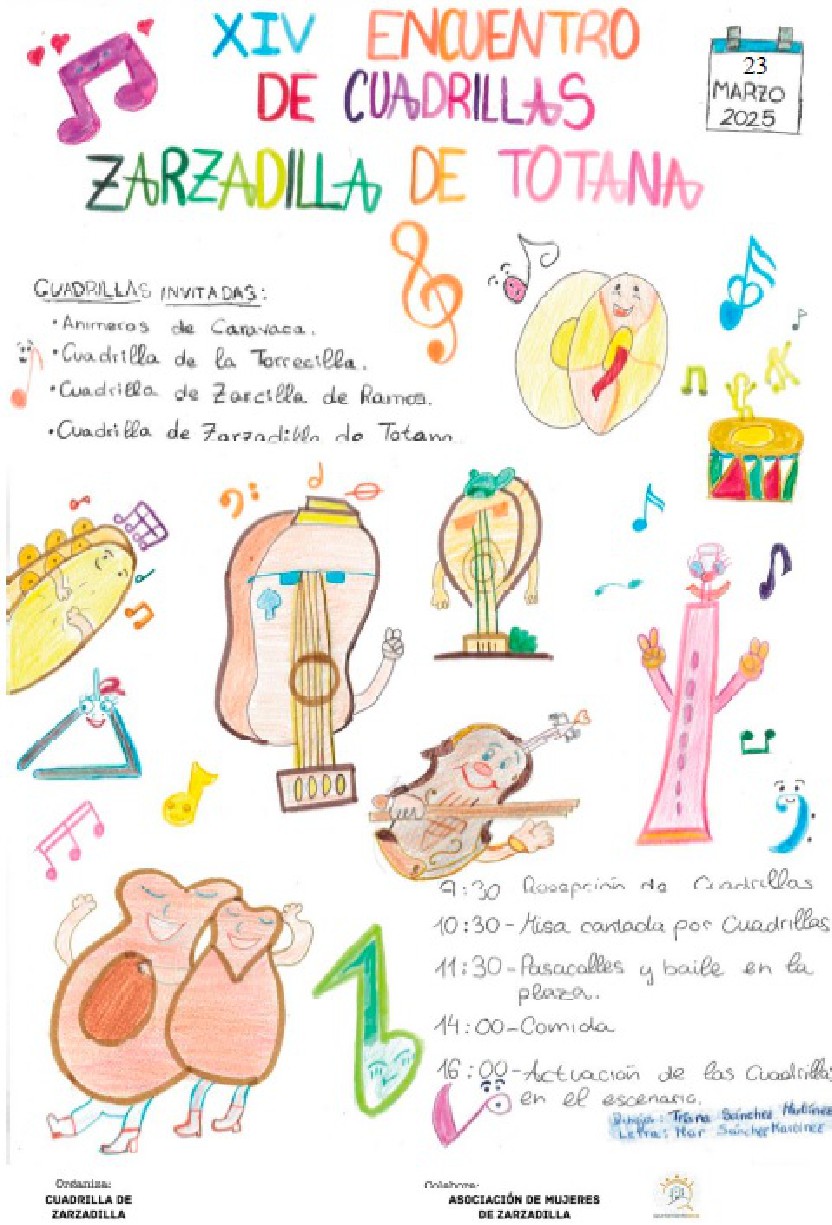 XIV ENCUENTRO
DE CUADRILLAS
ZARZADILLA DE TOTANA
23
MARZO
2025
CUADRILLAS INVITADAS:
• Animeros de Caravaca.
• Cuadrilla de la Torrecilla.
• Cuadrilla de Zarcilla de Ramos.
• Cuadrilla de Zarzadilla de Totana.
9:30 Recepción de Cuadrillas
10:30-Misa cantada por Cuadrillas
11:30-Pasacalles y baile en la
plaza.
14:00-Comida
16:00-Actuación de las Cuadrillas
en el escenario.
Dibujo: Triana Sánchez Martínez
Letra: Mar Sánchez Martínez
Organiza:
CUADRILLA DE
ZARZADILLA
Colabora:
ASOCIACIÓN DE MUJERES
DE ZARZADILLA